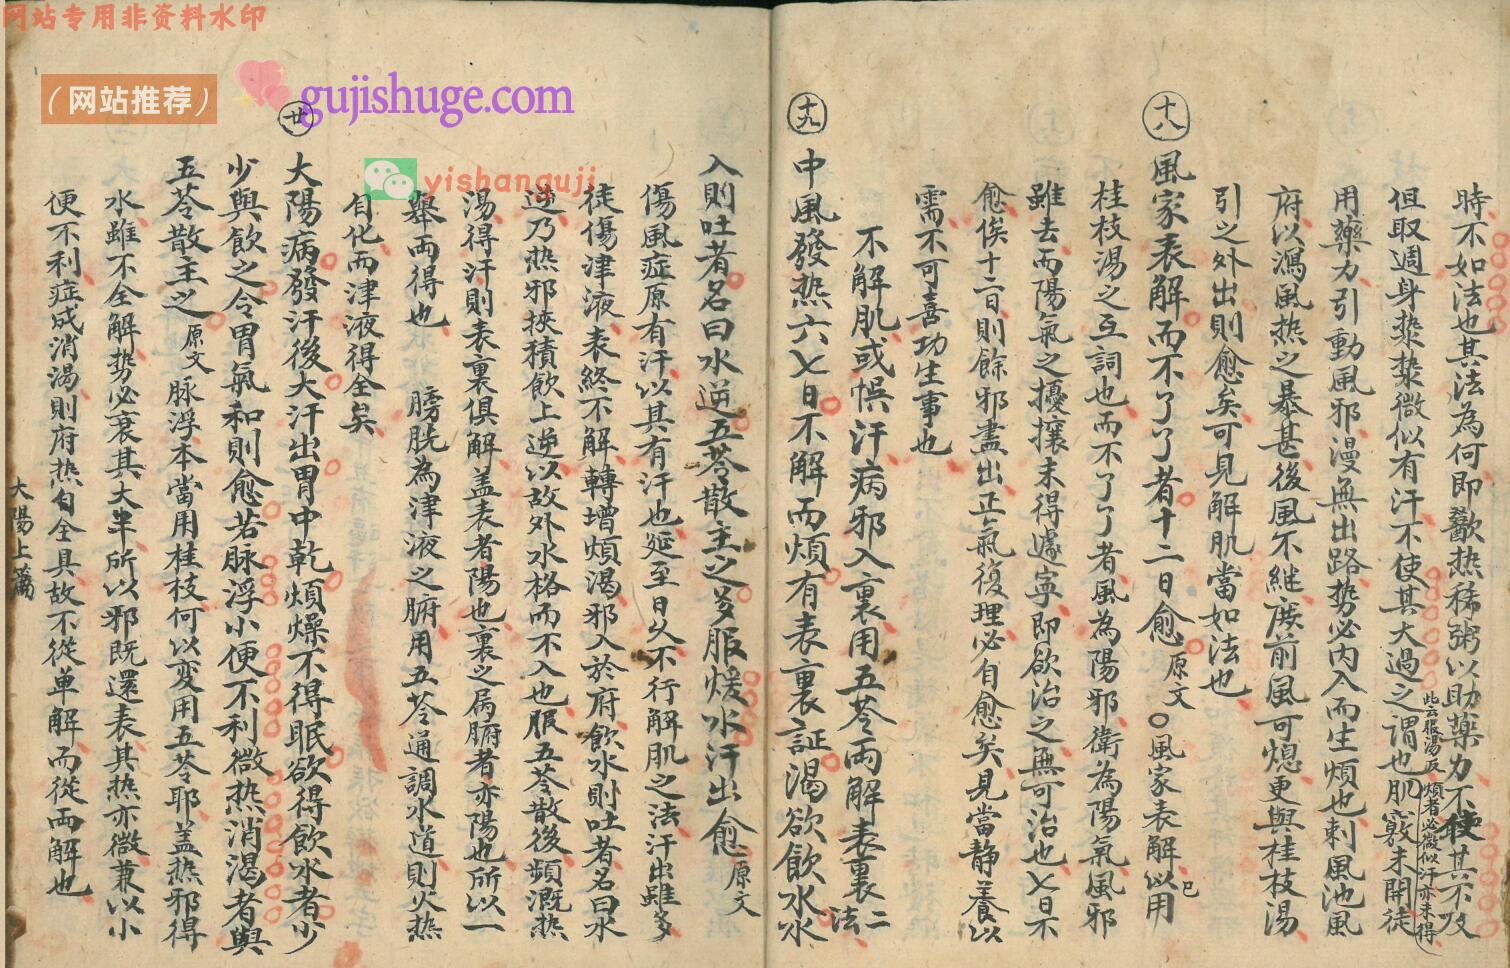 网站专用非资料水印
（网站推荐）
gujishuge.com
yishanguji
時不如法也其法為何即歠热稀粥以助藥力不使其不及
但取週身漐漐微似有汗不使其大過之謂也肌竅未開徒
此云服湯反煩者必微似汗亦未得
用藥力引動風邪漫無出路势必内入而生煩也刺風池風
府以瀉風热之暴甚後風不継庶前風可熄更與桂枝湯
引之外出則愈矣可見解肌當如法也
十八
風家表解而不了了者十二日愈原文○風家表解以用
已
桂枝湯之互詞也而不了了者風為陽邪衛為陽氣風邪
雖去而陽氣之擾攘未得遽寧即欲治之無可治也七日不
愈俟十二日則餘邪盡出正氣復理必自愈矣見當静養以
需不可喜功生事也
不解肌或悞汗病邪入裏用五苓兩解表裏二法
十九
中風發热六七日不解而煩有表裏証渴欲飲水水
入則吐者名曰水逆五苓散主之多服煖水汗出愈原文
傷風症原有汗以其有汗也延至日久不行解肌之法汗出雖多
徒傷津液表終不解轉增煩渴邪入於府飲水則吐者名曰水
逆乃热邪挾積飲上逆以故外水格而不入也服五苓散後頻溉热
湯得汗則表裏俱解盖表者陽也裏之属腑者亦陽也所以一
舉兩得也　膀胱為津液之腑用五苓通調水道則火热
自化而津液得全矣
廿
大陽病發汗後大汗出胃中乾煩燥不得眠欲得飲水者少
少與飲之令胃氣和則愈若脉浮小便不利微热消渴者與
五苓散主之原文脉浮本當用桂枝何以変用五苓耶盖热邪得
水雖不全解势必衰其大半所以邪既還表其热亦微兼以小
便不利症成消渴則府热自全具故不從单解而從兩解也
大陽上篇